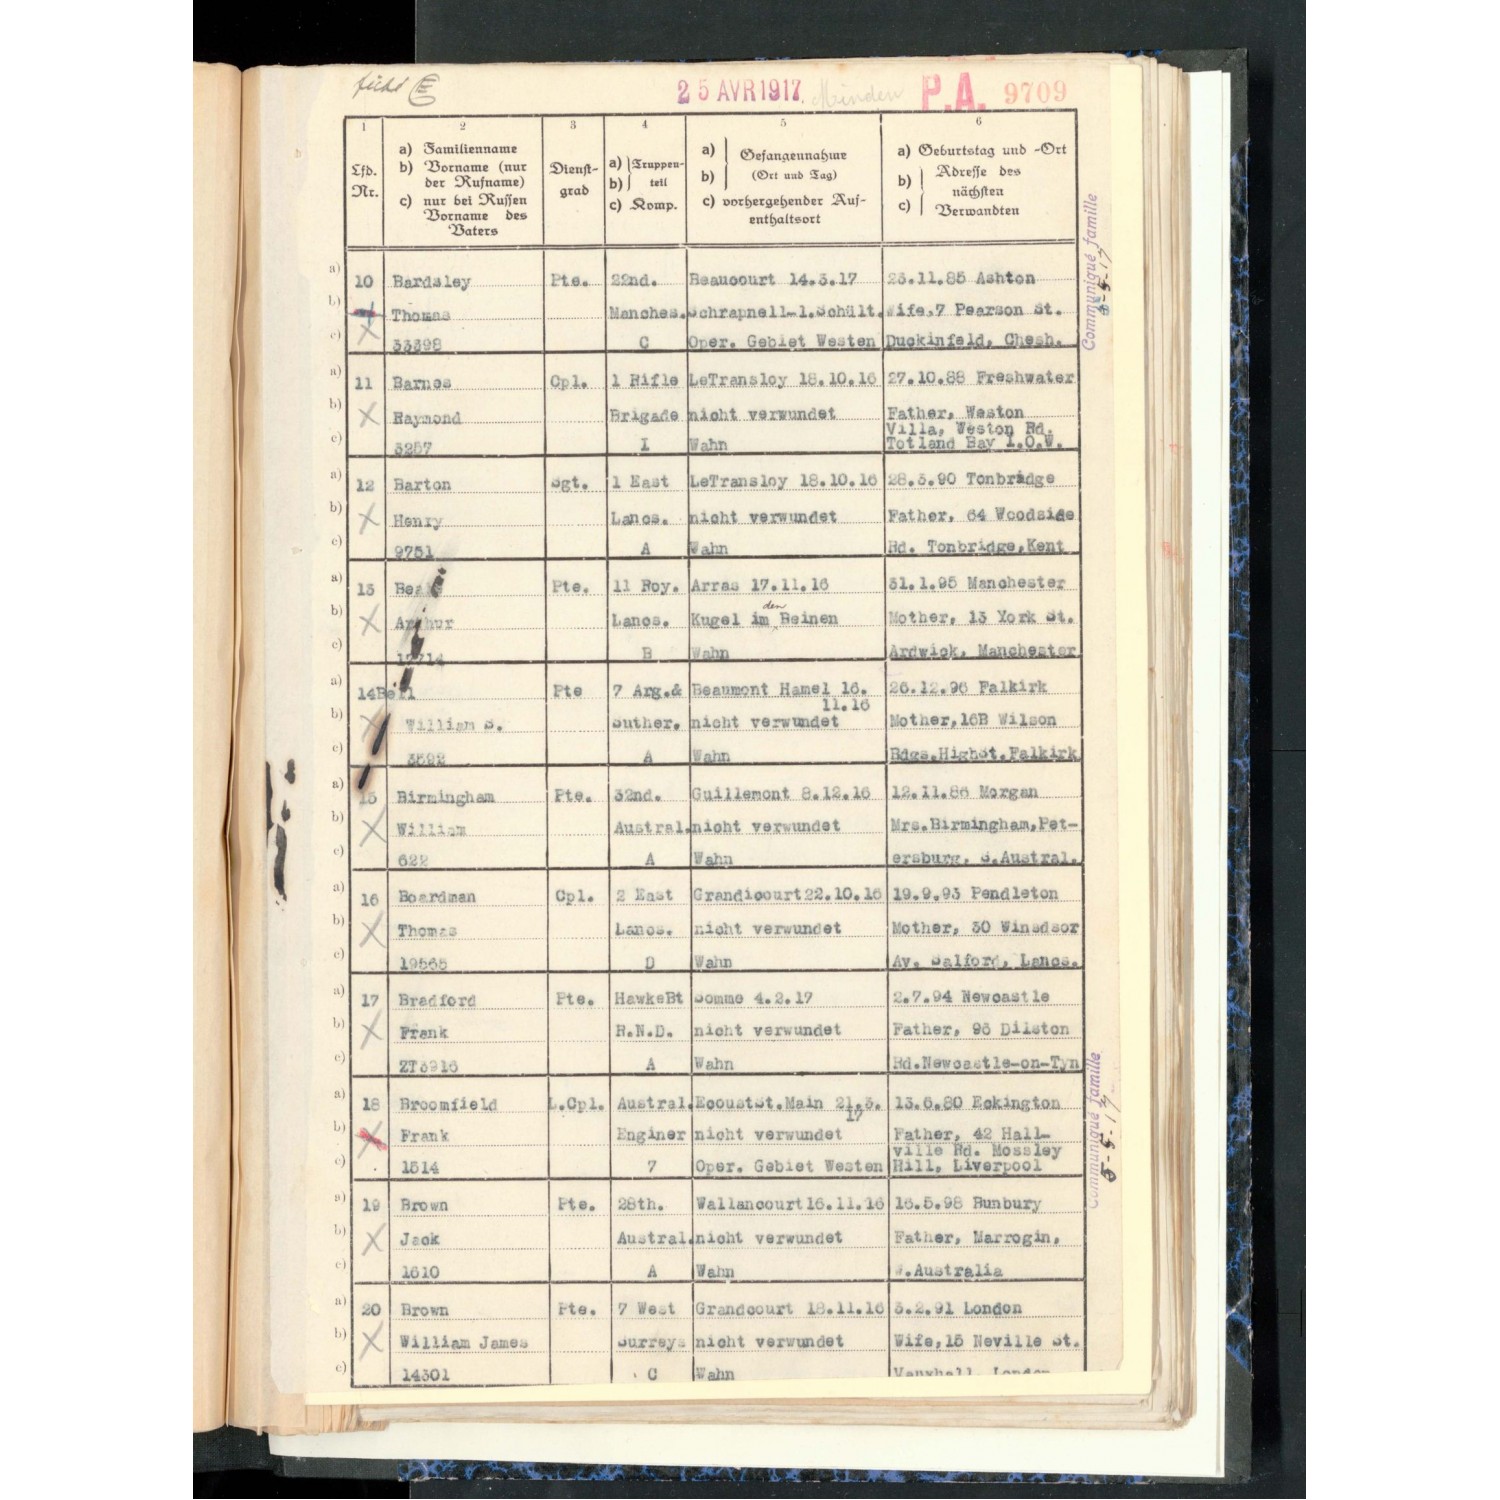 25 AVR 1917 Minden P.A. 9709
1 2 3 4 5 6
Lfd. Nr.
a) Familienname
b) Vorname (nur der Rufname)
c) nur bei Russen Vorname des Vaters
Dienst-
grad
a) Truppen-
b) teil
c) Komp.
a) Gefangennahme
b) (Ort und Tag)
c) vorhergehender Auf-
enthaltsort
a) Geburtstag und -Ort
b) Adresse des
nächsten
c) Verwandten
Communiqué famille
a) 10 Bardsley Pte. 22nd. Beaucourt 14.3.17 23.11.85 Ashton
b) Thomas Manches. Schrapnell-l.Schült. Wife,7 Pearson St.
c) 33398 C Oper. Gebiet Westen Duckinfeld, Chesh.
a) 11 Barnes Cpl. 1 Rifle LeTransloy 18.10.16 27.10.88 Freshwater
b) Raymond Brigade nicht verwundet Father, Weston
Villa, Weston Rd.
c) 3257 I Wahn Totland Bay I.O.W.
a) 12 Barton Sgt. 1 East LeTransloy 18.10.16 28.3.90 Tonbridge
b) Henry Lancs. nicht verwundet Father, 64 Woodside
c) 9751 A Wahn Rd. Tonbridge,Kent
a) 13 Pte. 11 Roy. Arras 17.11.16 31.1.95 Manchester
b) Arthur Lancs. Kugel im den Beinen Mother, 13 York St.
c) B Wahn Ardwick, Manchester
a) 14 Bell Pte 7 Arg.& Beaumont Hamel 16. 26.12.96 Falkirk
11.16
b) William S. Suther. nicht verwundet Mother,16B Wilson
c) 3592 A Wahn Bdgs.HighSt.Falkirk
a) 15 Birmingham Pte. 32nd. Guillemont 8.12.16 12.11.86 Morgan
b) William Austral. nicht verwundet Mrs.Birmingham,Pet-
c) 622 A Wahn ersburg, S.Austral.
a) 16 Boardman Cpl. 2 East Grandicourt 22.10.16 19.9.93 Pendleton
b) Thomas Lancs. nicht verwundet Mother, 30 Winsdsor
c) 19565 D Wahn Av. Salford, Lancs.
a) 17 Bradford Pte. HawkeBt Somme 4.2.17 2.7.94 Newcastle
b) Frank R.N.D. nicht verwundet Father, 95 Dilston
c) ZT3916 A Wahn Rd.Newcastle-on-Tyn
Communiqué famille
5-5-17
a) 18 Broomfield L.Cpl. Austral. EcoustSt.Main 21.3. 13.6.80 Eckington
17
b) Frank Enginer nicht verwundet Father, 42 Hall-
ville Rd. Mossley
c) 1514 7 Oper. Gebiet Westen Hill, Liverpool
a) 19 Brown Pte. 28th. Wallancourt 16.11.16 16.5.98 Bunbury
b) Jack Austral. nicht verwundet Father, Marrogin,
c) 1610 A Wahn W.Australia
a) 20 Brown Pte. 7 West Grandcourt 18.11.16 3.2.91 London
b) William James Surreys nicht verwundet Wife,15 Neville St.
c) 14301 C Wahn Vauxhall, London